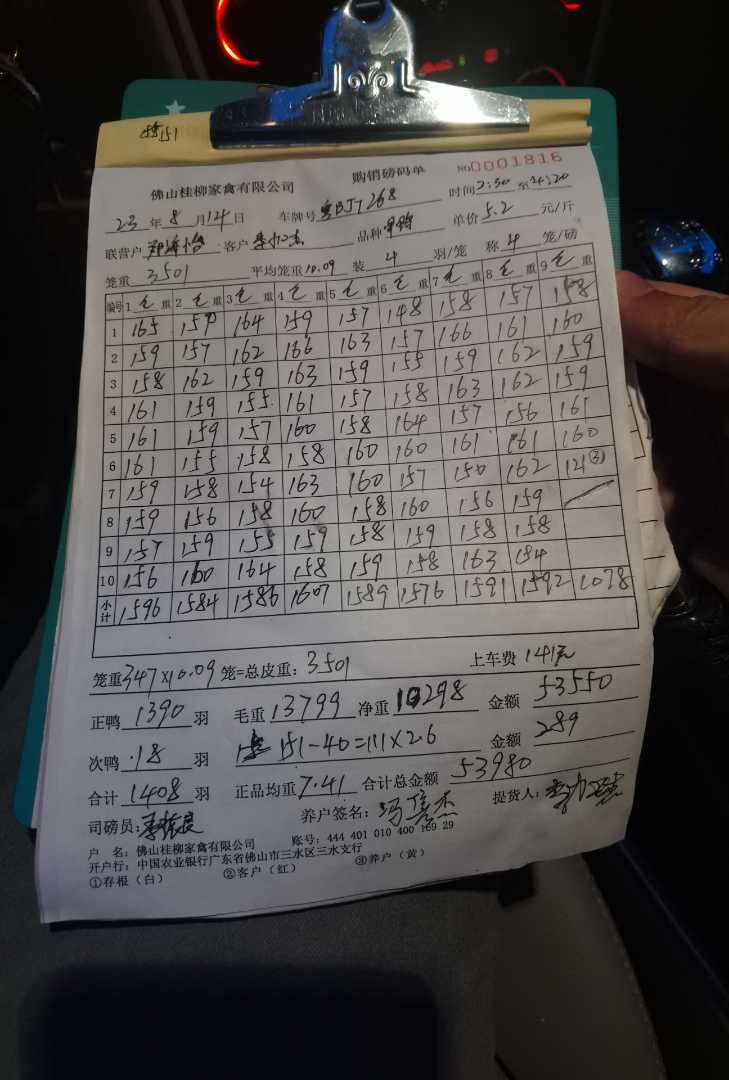 151
佛山桂柳家禽有限公司 购销磅码单 №0001816
23 年 8 月 14 日 车牌号 粤BJ7268 时间 2:30 至 4:20
联营户 客户 品种 单价 5.2 元/斤
笼重 3501 平均笼重 10.09 装 4 羽/笼 称 4 笼/磅
编号 1 毛重 2 毛重 3 毛重 4 毛重 5 毛重 6 毛重 7 毛重 8 毛重 9 毛重
1 165 159 164 159 157 148 158 157 158
2 159 157 162 166 163 157 166 161 160
3 158 162 159 163 159 155 159 162 159
4 161 159 155 161 157 158 163 162 159
5 161 159 157 160 158 164 157 156 161
6 161 155 158 158 160 160 161 161 160
7 159 158 154 163 160 157 150 162 121③
8 159 156 158 160 158 160 156 159
9 157 159 155 159 158 159 158 158
10 156 160 164 158 159 158 163 154
小计 1596 1584 1586 1607 1589 1576 1591 1592 1078
笼重 347×10.09 笼=总皮重: 3501 上车费 141元
正鸭 1390 羽 毛重 13799 净重 10298 金额 53550
次鸭 18 羽 151-40=111×2.6 金额 289
合计 1408 羽 正品均重 7.41 合计总金额 53980
司磅员: 养户签名: 冯 杰 提货人:
户 名: 佛山桂柳家禽有限公司 账号: 444 401 010 400 169 29
开户行: 中国农业银行广东省佛山市三水区三水支行
①存根（白） ②客户（红） ③养户（黄）